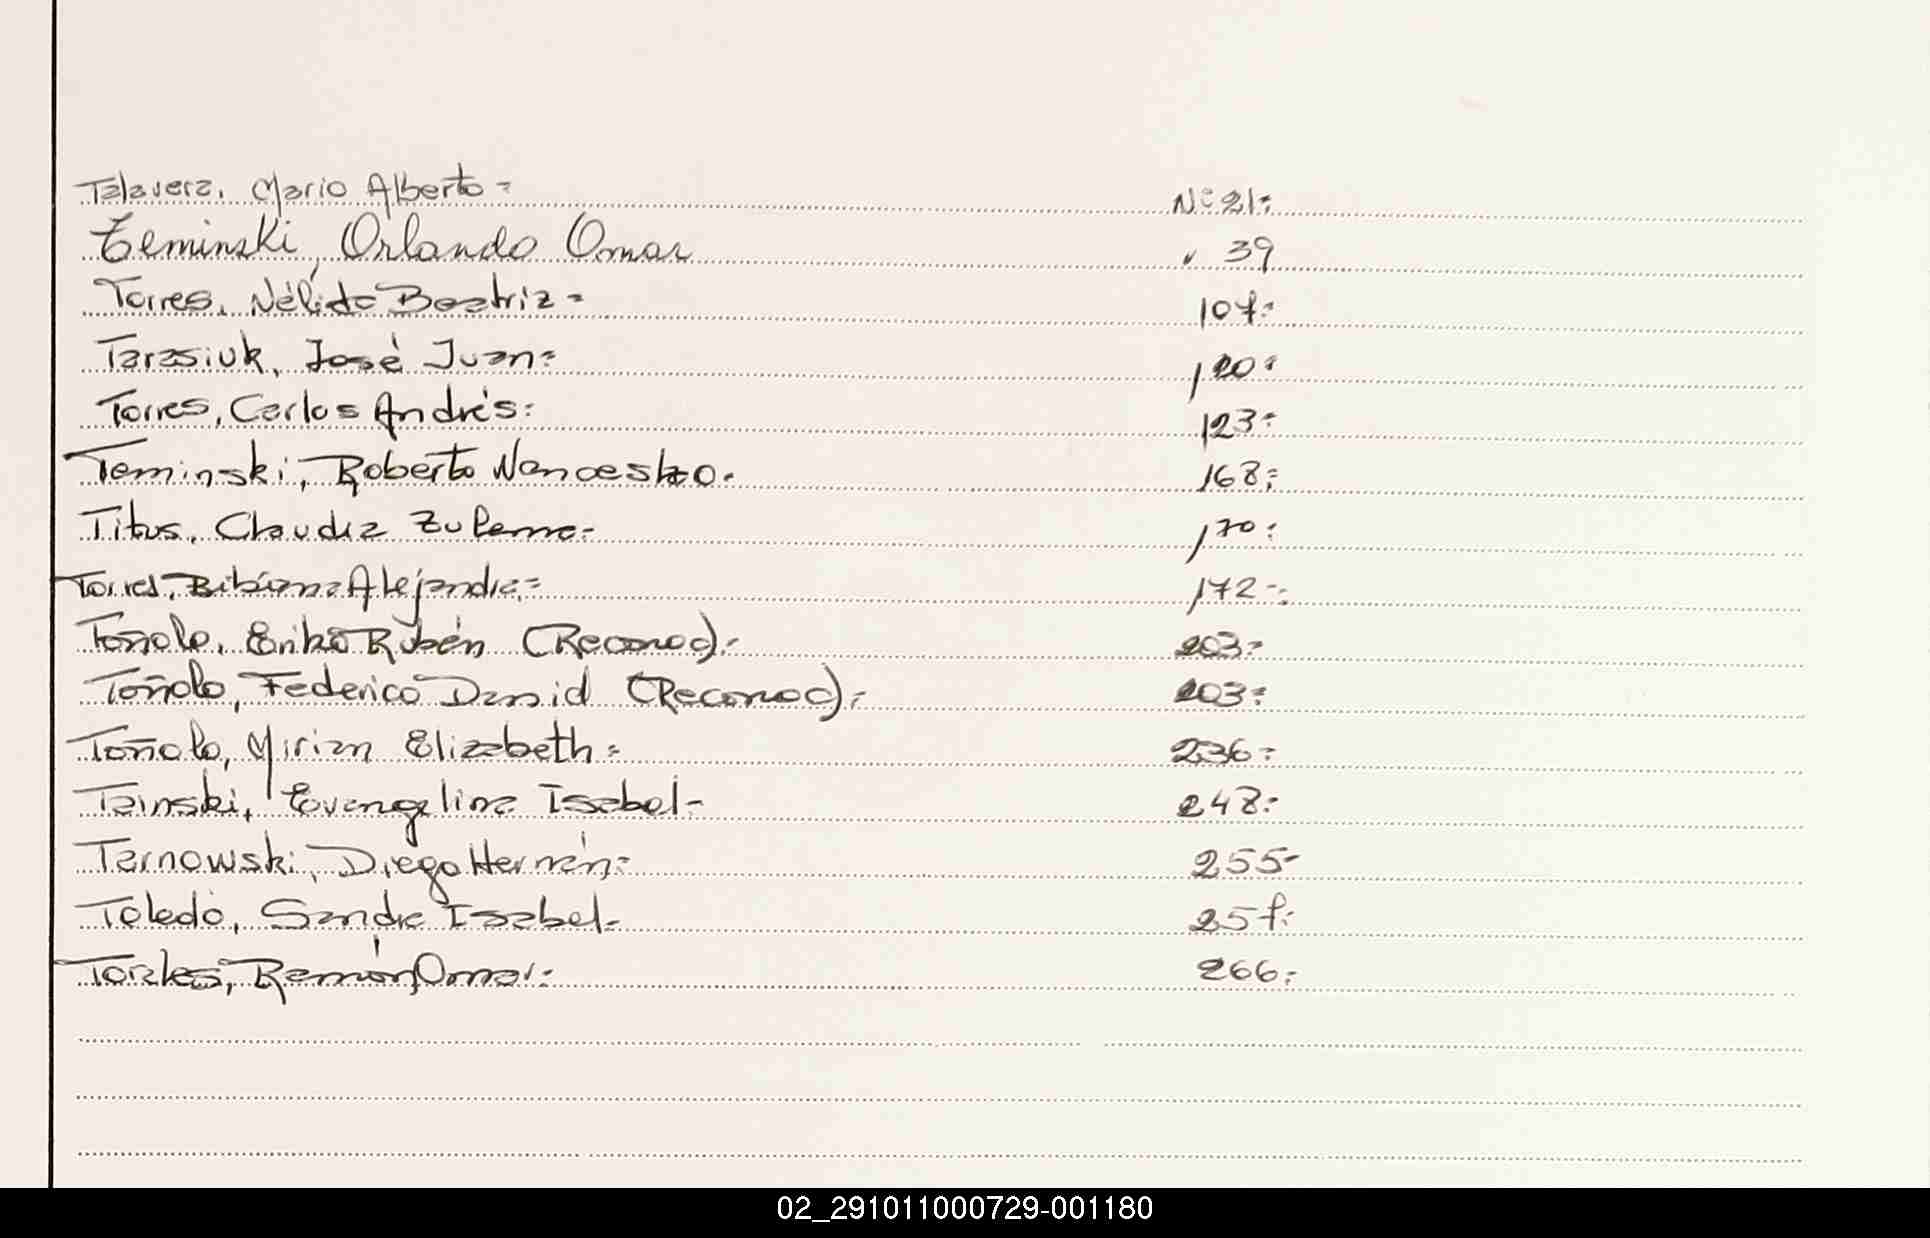 Talavera, Mario Alberto = Nº 21:
Teminski, Orlando Omar " 39
Torres, Nélida Beatriz = 107:
Tarasiuk, José Juan = 120:
Torres, Carlos Andrés: 123:
Teminski, Roberto 168:
Titus, Claudia Zulema = 170:
Torres, Bibiana Alejandra = 172-:
Toñolo, Rubén (Reconoc) = 203=
Toñolo, Federico David (Reconoc) = 203=
Toñolo, Mirian Elizabeth = 236=
Evangelina Isabel- 248=
Tarnowski, Diego Hernán = 255-
Toledo, Sandra Isabel- 257:
Torales, Ramón Omar: 266:
02_291011000729-001180